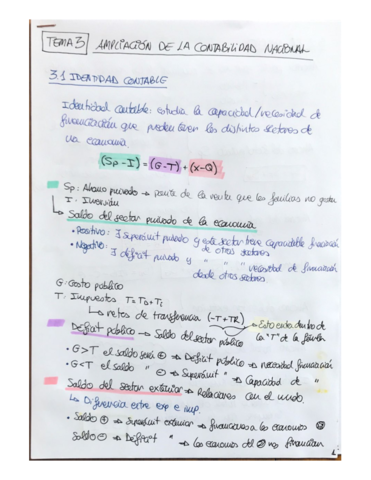 TEMA 3 AMPLIACIÓN DE LA CONTABILIDAD NACIONAL
3.1 IDENTIDAD CONTABLE
Identidad contable: estudia la capacidad/necesidad de
financiación que pueden tener los distintos sectores de
una economía.
(Sp - I) = (G - T) + (X - Q)
Sp: Ahorro privado → parte de la renta que las familias no gastan
I: Inversión
↳ Saldo del sector privado de la economía
• Positivo: ∃ superávit privado y este sector tiene capacidad de financiación
de otros sectores
• Negativo: ∃ déficit privado y " " " necesidad de financiación
desde otros sectores.
G: Gasto público
T: Impuestos T = Td + Ti
↳ netos de transferencia (-T+TR) → Esto entra dentro de
la "T" de la fórmula
Déficit público → Saldo del sector público
• G > T el saldo será ⊕ → Déficit público → necesidad financiación
• G < T el saldo " ⊖ → Superávit " → Capacidad de "
Saldo del sector exterior → Relaciones con el mundo.
↳ Diferencia entre exp e imp.
• Saldo ⊕ → Superávit exterior → financiamos a las economías
Saldo ⊖ → Déficit " → las economías del nos financian